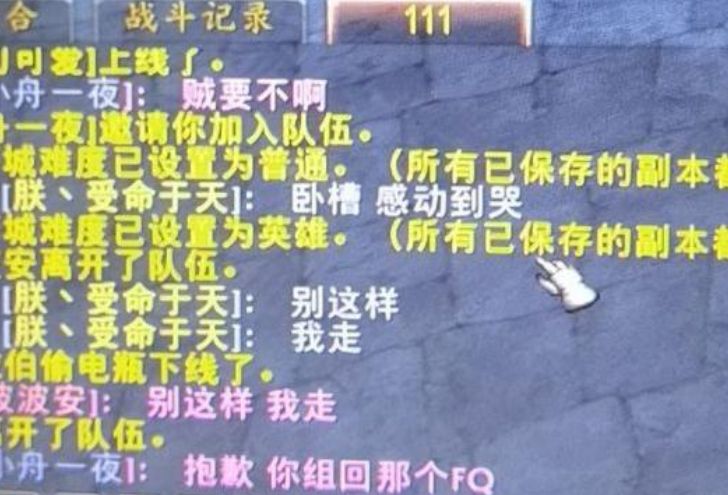 合 战斗记录 111
可爱]上线了。
小舟一夜]: 贼要不啊
舟一夜]邀请你加入队伍。
城难度已设置为普通。(所有已保存的副本都
[朕丶受命于天]: 卧槽 感动到哭
城难度已设置为英雄。(所有已保存的副本都
安离开了队伍。
[朕丶受命于天]: 别这样
[朕丶受命于天]: 我走
伯偷电瓶下线了。
波波安]: 别这样 我走
离开了队伍。
小舟一夜]: 抱歉 你组回那个FQ